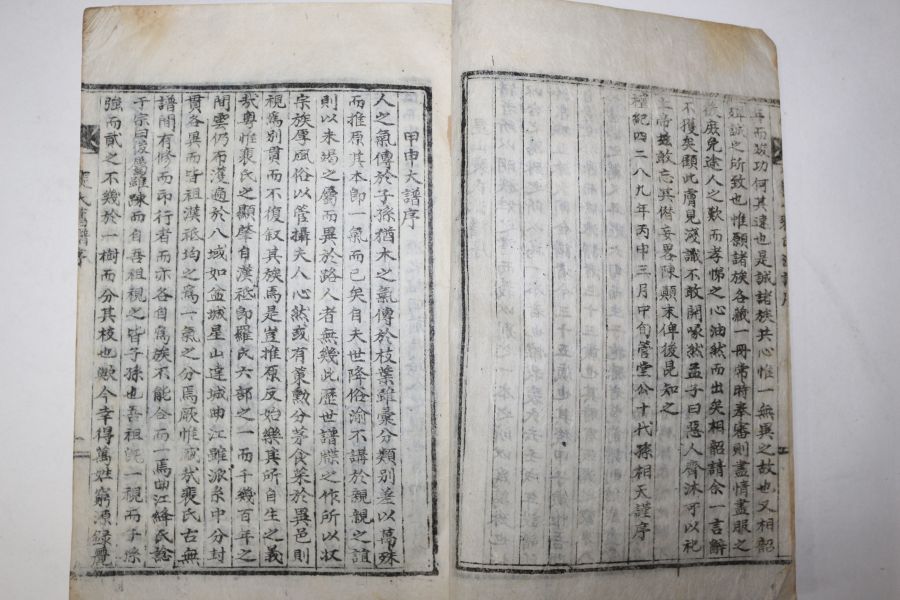 年而竣功何其速也是誠諸族共心惟一無異之故也又相韶
誠之所致也惟願諸族各藏一冊常時奉審則盡情盡服之
庶免途人之歎而孝悌之心油然而出矣相韶請余一言辭
不獲矣顧此膚見淺識不敢開喙然孟子曰惡人齊沐可以祀
上帝玆敢忘其僭妄畧陳顚末俾後昆知之
檀紀四二八九年丙申三月中旬菅堂公十代孫相天謹序
甲申大譜序
人之氣傳於子孫猶木之氣傳於枝葉雖彙分類別差以萬殊
而推原其本卽一氣而已矣自夫世降俗渝不講於親親之誼
則以未竭之屬而異於路人者無幾此歷世譜牒之作所以收
宗族厚風俗以管攝夫人心然或有策勳分茅食菜於異邑則
視爲別貫而不復叙其族焉是豈推原反始樂其所自生之義
哉粤惟裵氏之顯肇自漢祗卽羅氏六部之一而千幾百年之
間雲仍布濩遍於八域如盆城星山達城曲江雖派系中分封
貫各異而皆祖漢祗均之爲一氣之分焉厥惟哉裵氏古無
譜間有修而印行者而亦各自爲族不能合而一焉曲江絳氏諗
于宗曰雖踈而自吾祖視之皆子孫也吾祖旣一視而子孫
強而貳之不幾於一樹而分其枝也歟今幸得萬姓窮源錄
氏舊譜序